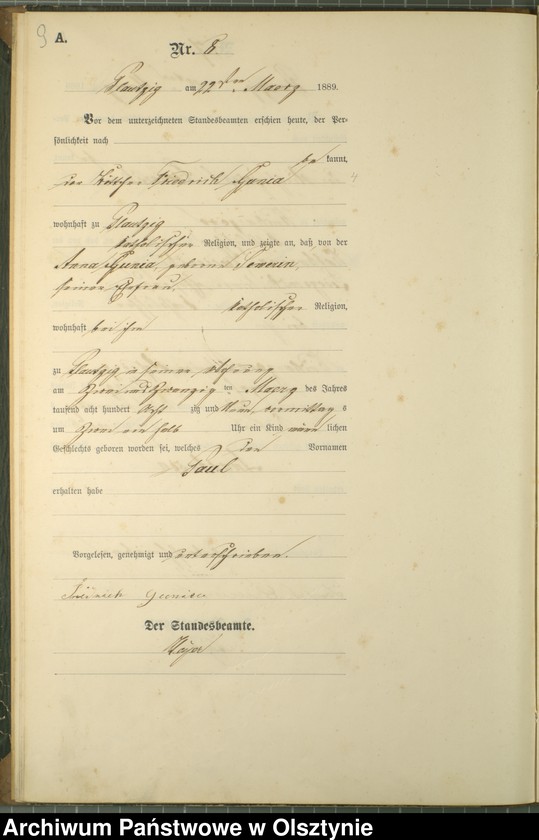 9 A.
Nr. 8.
Plautzig am 22ten Maerz 1889.
Vor dem unterzeichneten Standesbeamten erschien heute, der Per-
sönlichkeit nach
be kannt,
der Friedrich
4
wohnhaft zu Plautzig
katholischer Religion, und zeigte an, daß von der
Anna geborene
seiner Ehefrau,
katholischer Religion,
wohnhaft bei ihm
zu Plautzig in seiner Wohnung
am zwei und zwanzigten Maerz des Jahres
tausend acht hundert Acht zig und Neun, vormittag s
um Zwei ein halb Uhr ein Kind männ lichen
Geschlechts geboren worden sei, welches den Vornamen
Paul
erhalten habe
Vorgelesen, genehmigt und unterschrieben.
Der Standesbeamte.
Archiwum Państwowe w Olsztynie